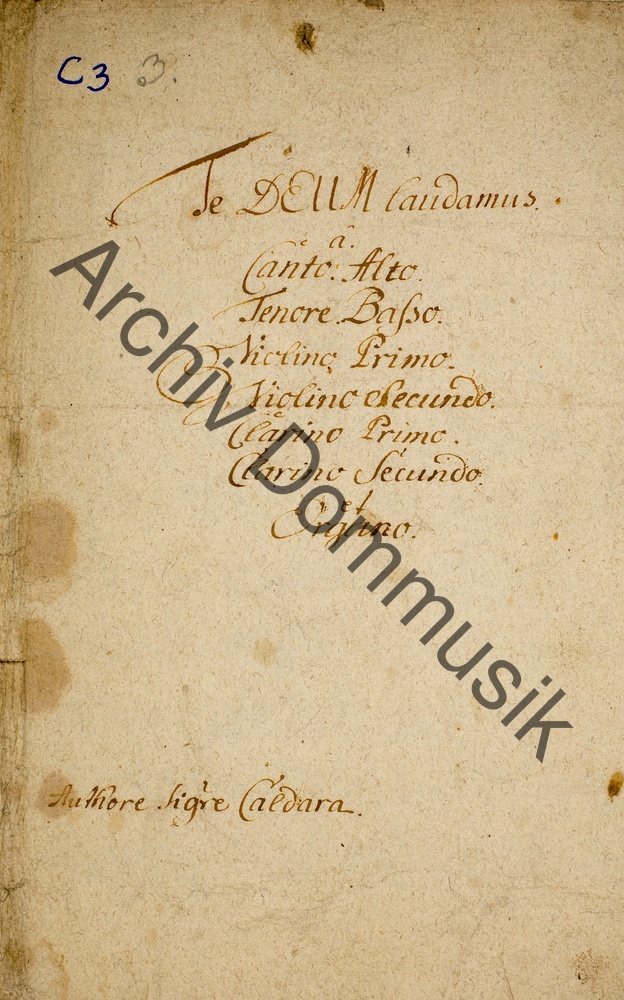 C3 3.
Te DEUM laudamus.
â.
Canto. Alto.
Tenore. Baſso.
Violino Primo.
Violino Secundo.
Clarino Primo.
Clarino Secundo.
et
Organo.
Authore Sigre Caldara.
Archiv Dommusik